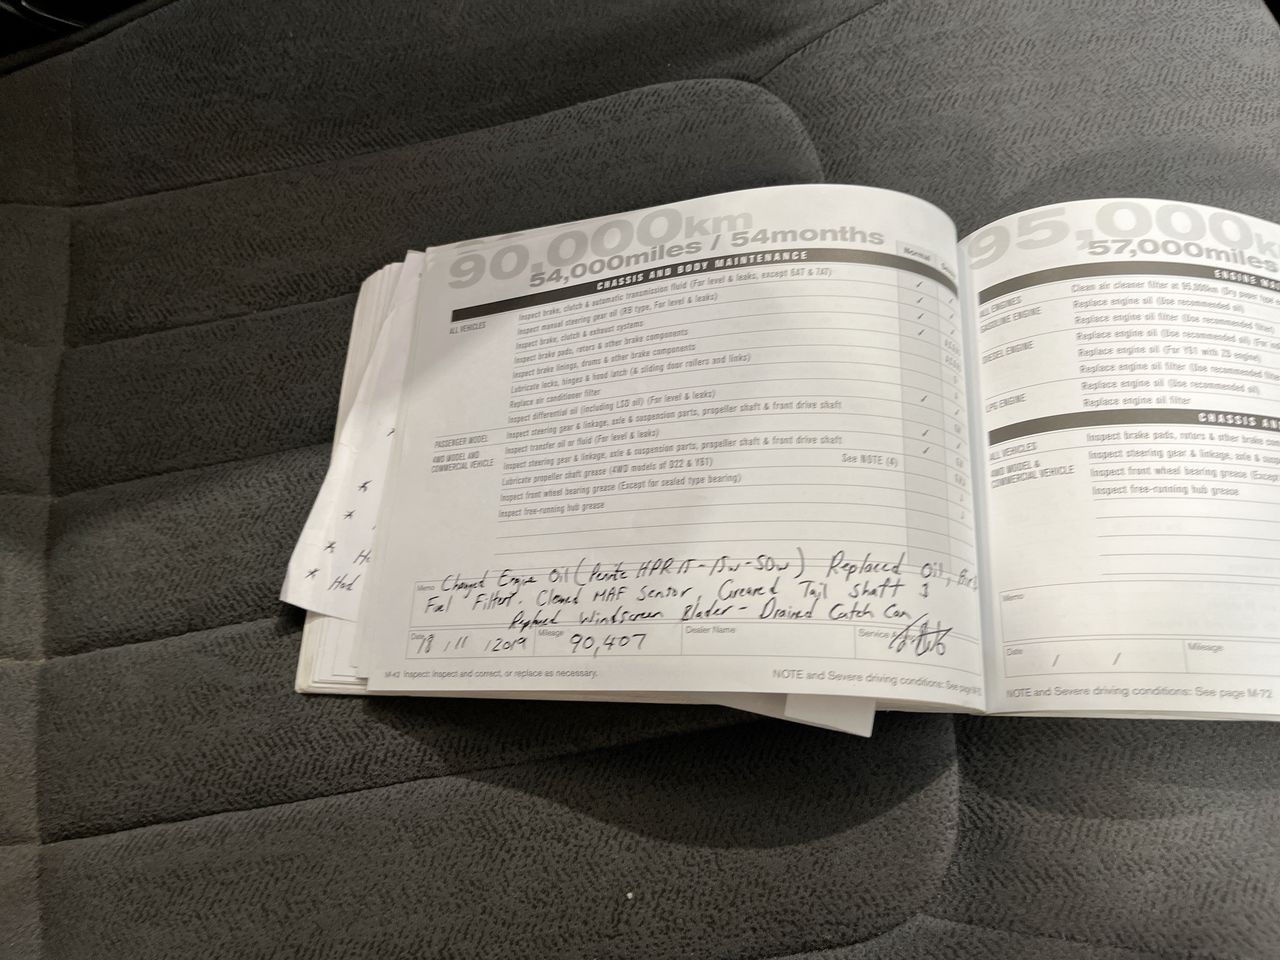 90,000km
54,000miles / 54months
CHASSIS AND BODY MAINTENANCE
Normal
ALL VEHICLES
Inspect brake, clutch & automatic transmission fluid (For level & leaks, except 6AT & 7AT)
Inspect manual steering gear oil (RB type, For level & leaks)
Inspect brake, clutch & exhaust systems
Inspect brake pads, rotors & other brake components
Inspect brake linings, drums & other brake components
Lubricate locks, hinges & hood latch (& sliding door rollers and links)
Replace air conditioner filter
Inspect differential oil (including LSD oil) (For level & leaks)
PASSENGER MODEL
Inspect steering gear & linkage, axle & suspension parts, propeller shaft & front drive shaft
4WD MODEL AND
COMMERCIAL VEHICLE
Inspect transfer oil or fluid (For level & leaks)
Inspect steering gear & linkage, axle & suspension parts, propeller shaft & front drive shaft
Lubricate propeller shaft grease (4WD models of D22 & Y61) See NOTE (4)
Inspect front wheel bearing grease (Except for sealed type bearing)
Inspect free-running hub grease
Memo Changed Engine Oil (Penrite HPR 15-15w-50w) Replaced Oil,
Fuel Filters. Cleaned MAF Sensor, Greased Tail Shaft
Replaced Windscreen Blades - Drained Catch Can
Date 18 / 11 / 2019 Mileage 90,407 Dealer Name Service
M-42 Inspect: Inspect and correct, or replace as necessary.
NOTE and Severe driving conditions: See page
95,000k
57,000miles
ENGINE
ALL ENGINES
Clean air cleaner filter at 95,000km
GASOLINE ENGINE
Replace engine oil (Use recommended oil)
Replace engine oil filter (Use recommended filter)
DIESEL ENGINE
Replace engine oil (Use recommended oil)
Replace engine oil (For Y61 with ZD engine)
Replace engine oil filter
LPG ENGINE
Replace engine oil (Use recommended oil)
Replace engine oil filter
CHASSIS AN
ALL VEHICLES
Inspect brake pads, rotors & other brake
4WD MODEL &
COMMERCIAL VEHICLE
Inspect steering gear & linkage, axle &
Inspect front wheel bearing grease
Inspect free-running hub grease
Memo
Date / / Mileage
NOTE and Severe driving conditions: See page M-72
* Had